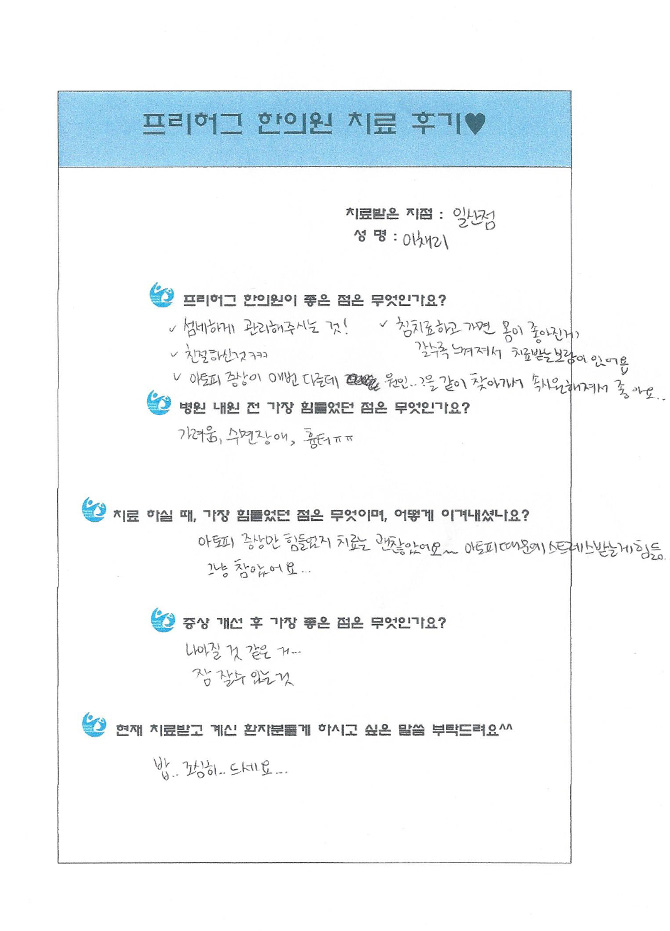 프리허그 한의원 치료 후기♥
치료받은 지점 : 일산점
성 명 : 이채리
프리허그 한의원이 좋은 점은 무엇인가요?
✓ 섬세하게 관리해주시는 것! ✓ 침치료하고 가면 몸이 좋아진게,
갈수록 느껴져서 치료받는보람이 있어요
✓ 친절하신것ㅋㅋㅋ
✓ 아토피 증상이 매번 다른데 원인..?을 같이 찾아가서 속시원해져서 좋아요..
병원 내원 전 가장 힘들었던 점은 무엇인가요?
가려움, 수면장애, 흉터ㅠㅠ
치료 하실 때, 가장 힘들었던 점은 무엇이며, 어떻게 이겨내셨나요?
아토피 증상만 힘들었지 치료는 괜찮았어요~ 아토피때문에 스트레스받는게 힘듦
그냥 참았어요..
증상 개선 후 가장 좋은 점은 무엇인가요?
나아질 것 같은 거...
잠 잘수 있는것
현재 치료받고 계신 환자분들게 하시고 싶은 말씀 부탁드려요^^
밥.. 조심히.. 드세요...